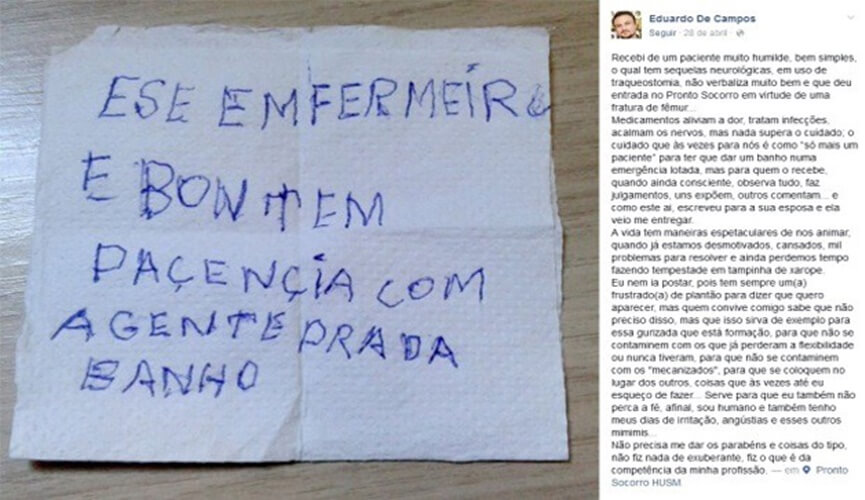 ESE EMFERMEIRO
E BON TEM
PAÇENÇIA COM
AGENTE PRADA
BANHO
Eduardo De Campos
Seguir · 28 de abril ·
Recebi de um paciente muito humilde, bem simples,
o qual tem sequelas neurológicas, em uso de
traqueostomia, não verbaliza muito bem e que deu
entrada no Pronto Socorro em virtude de uma
fratura de fêmur...
Medicamentos aliviam a dor, tratam infecções,
acalmam os nervos, mas nada supera o cuidado; o
cuidado que às vezes para nós é como "só mais um
paciente" para ter que dar um banho numa
emergência lotada, mas para quem o recebe,
quando ainda consciente, observa tudo, faz
julgamentos, uns expõem, outros comentam... e
como este aí, escreveu para a sua esposa e ela
veio me entregar.
A vida tem maneiras espetaculares de nos animar,
quando já estamos desmotivados, cansados, mil
problemas para resolver e ainda perdemos tempo
fazendo tempestade em tampinha de xarope.
Eu nem ia postar, pois tem sempre um(a)
frustrado(a) de plantão para dizer que quero
aparecer, mas quem convive comigo sabe que não
preciso disso, mas que isso sirva de exemplo para
essa gurizada que está formação, para que não se
contaminem com os que já perderam a flexibilidade
ou nunca tiveram, para que não se contaminem
com os "mecanizados", para que se coloquem no
lugar dos outros, coisas que às vezes até eu
esqueço de fazer... Serve para que eu também não
perca a fé, afinal, sou humano e também tenho
meus dias de irritação, angústias e esses outros
mimimis...
Não precisa me dar os parabéns e coisas do tipo,
não fiz nada de exuberante, fiz o que é da
competência da minha profissão. — em Pronto
Socorro HUSM.